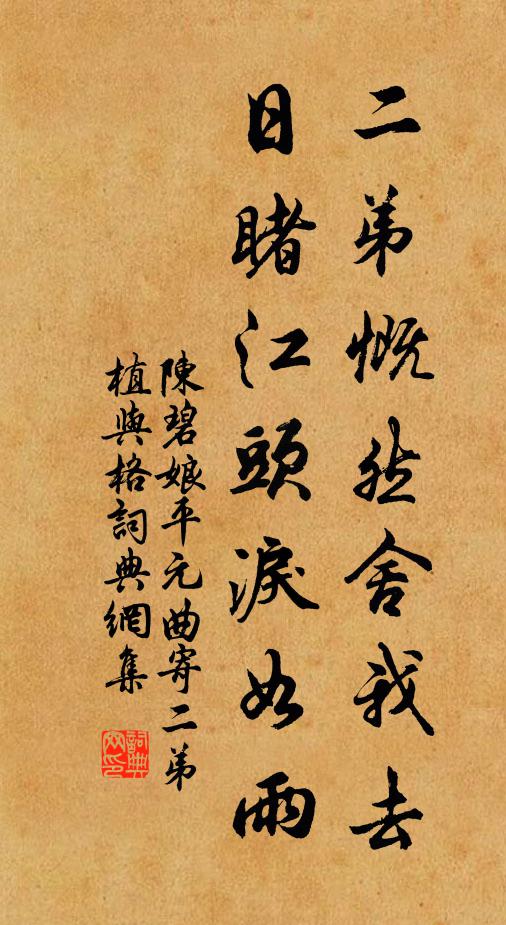 二弟慨然舍我去
日睹江頭淚如雨
陳碧娘平元曲寄二弟
植與格詞典網集
詞典
网印